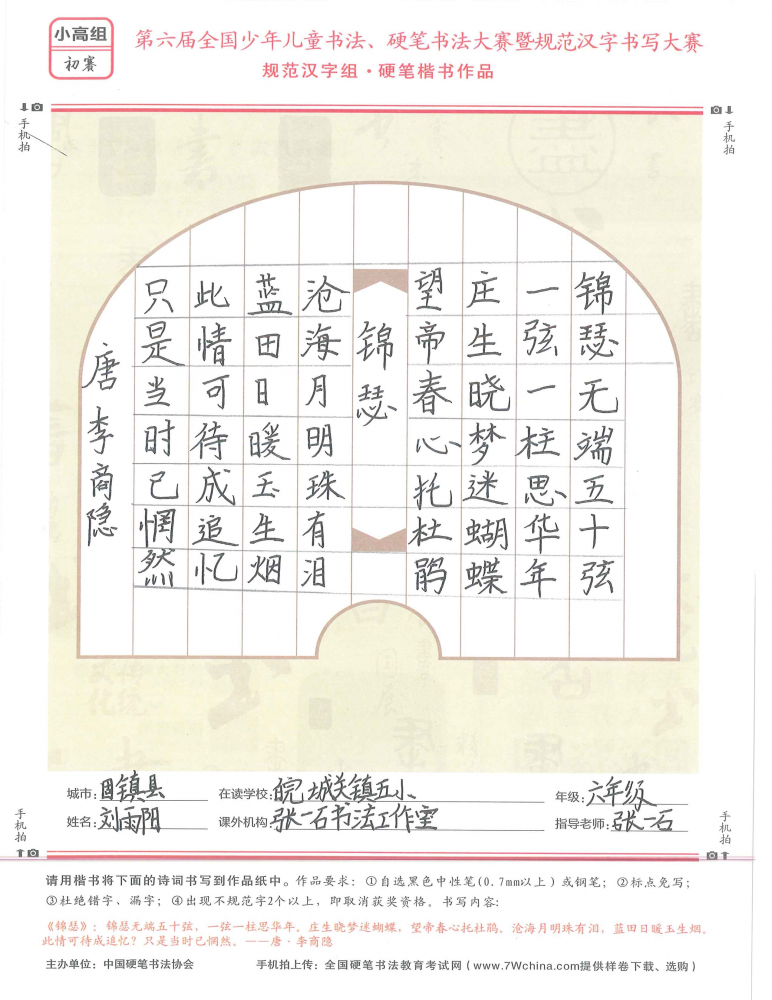 小高组
初赛
第六届全国少年儿童书法、硬笔书法大赛暨规范汉字书写大赛
规范汉字组·硬笔楷书作品
手机拍
手机拍
锦瑟无端五十弦
一弦一柱思华年
庄生晓梦迷蝴蝶
望帝春心托杜鹃
锦瑟
沧海月明珠有泪
蓝田日暖玉生烟
此情可待成追忆
只是当时已惘然
唐李商隐
城市:固镇县 在读学校:皖城关镇五小 年级:六年级
姓名:刘雨阳 课外机构:张一石书法工作室 指导老师:张一石
手机拍
手机拍
请用楷书将下面的诗词书写到作品纸中。作品要求:①自选黑色中性笔(0.7mm以上)或钢笔;②标点免写;
③杜绝错字、漏字;④出现不规范字2个以上,即取消获奖资格。书写内容:
《锦瑟》:锦瑟无端五十弦,一弦一柱思华年。庄生晓梦迷蝴蝶,望帝春心托杜鹃。沧海月明珠有泪,蓝田日暖玉生烟。
此情可待成追忆?只是当时已惘然。——唐·李商隐
主办单位:中国硬笔书法协会 手机拍上传:全国硬笔书法教育考试网(www.7Wchina.com提供样卷下载、选购)